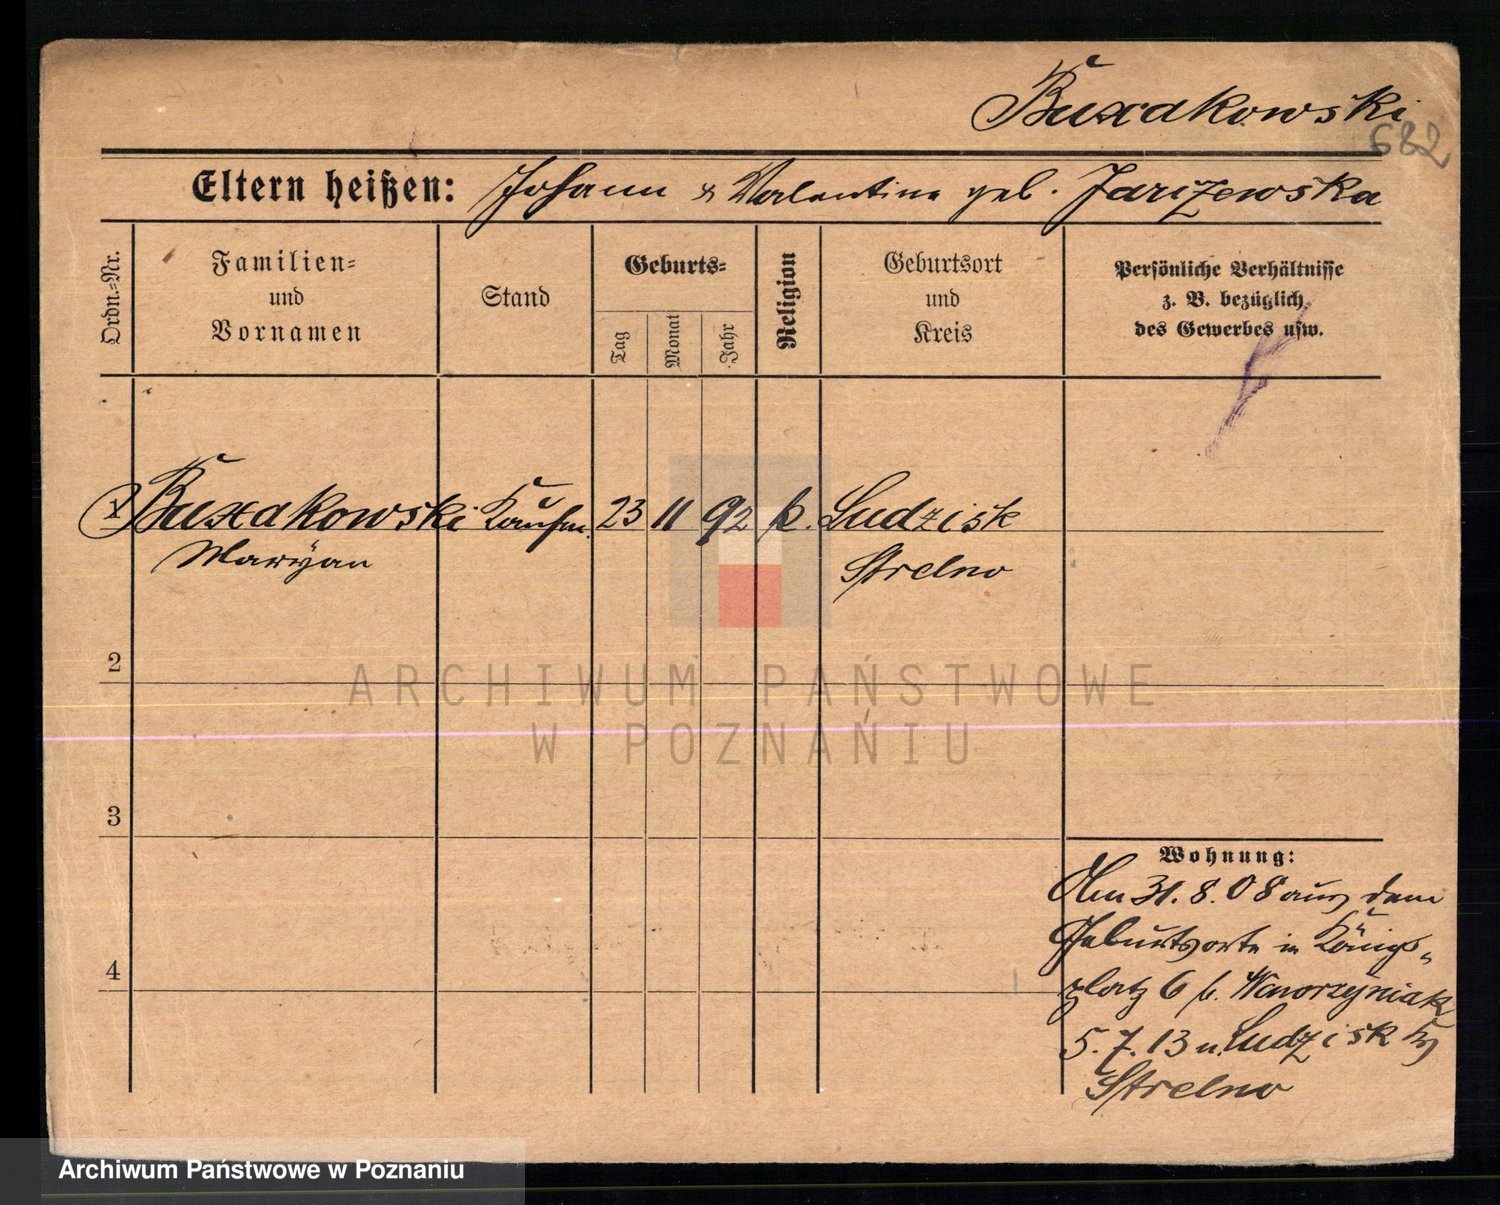 Buxakowski
682
Eltern heißen: Johann & Valentine geb. Jarizewska
Ordn.=Nr.
Familien=
und
Vornamen
Stand
Geburts=
Tag
Monat
Jahr
Religion
Geburtsort
und
Kreis
Persönliche Verhältnisse
z. B. bezüglich
des Gewerbes usw.
1 Buxakowski Kaufm. 23 11 92 k. Ludzisk
Maryan Strelno
2
ARCHIWUM PAŃSTWOWE
W POZNANIU
3
Wohnung:
Am 31. 8. 08 aus dem
Geburtsorte in Königs-
4
platz 6 b. Wawrzyniak
5. 7. 13 n. Ludzisk Kr
Strelno
Archiwum Państwowe w Poznaniu